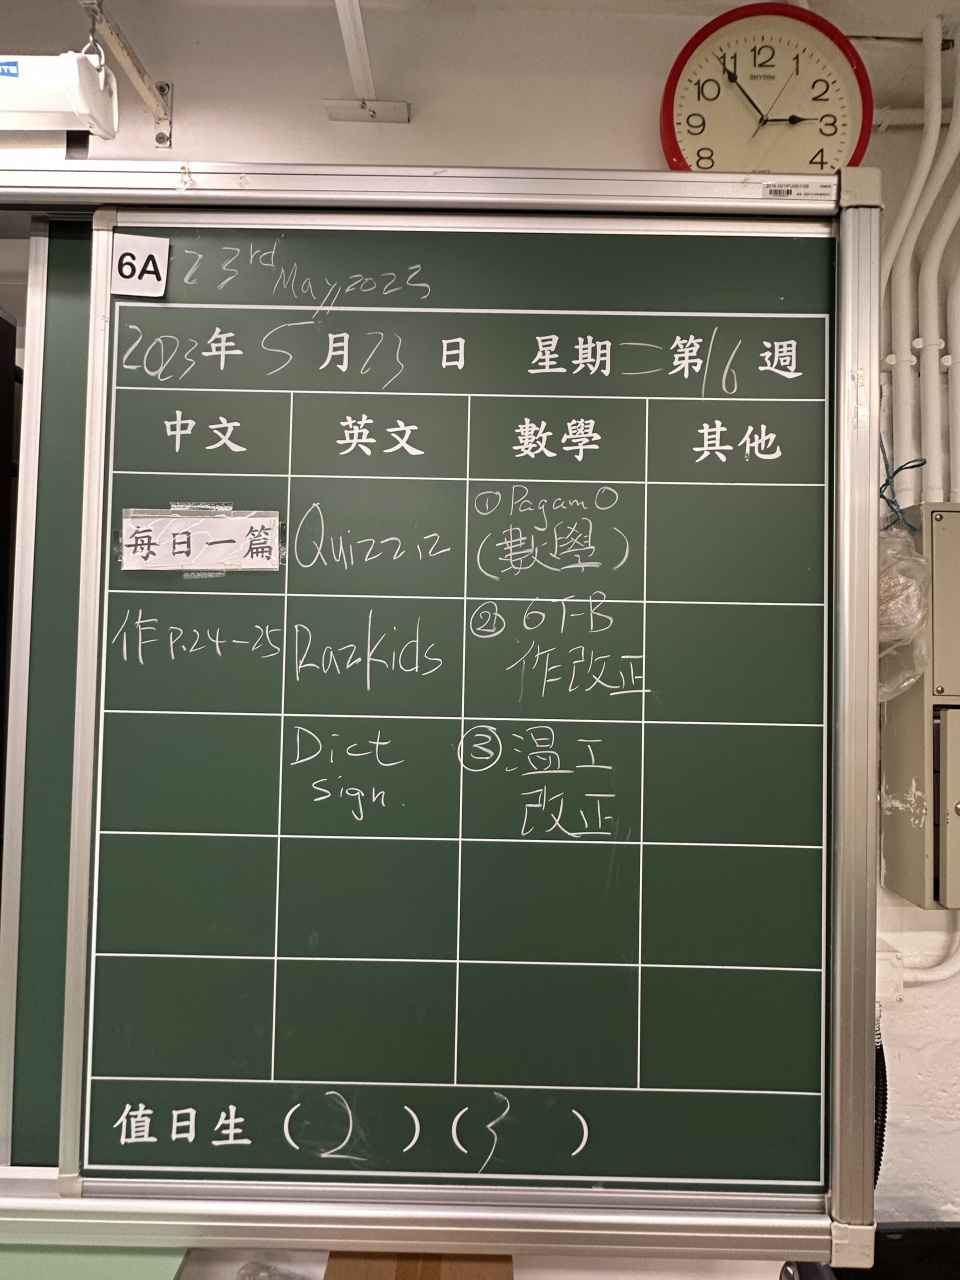 12
11
1
10
2
9
3
8
4
RHYTHM
QUARTZ
6A
23rd May, 2023
2023年5月23日 星期二第16週
中文 英文 數學 其他
每日一篇
Quizziz
①PagamO
(數學)
作P.24-25
Razkids
②6T-B
作改正
Dict
sign.
③温工
改正
值日生(2)(3)